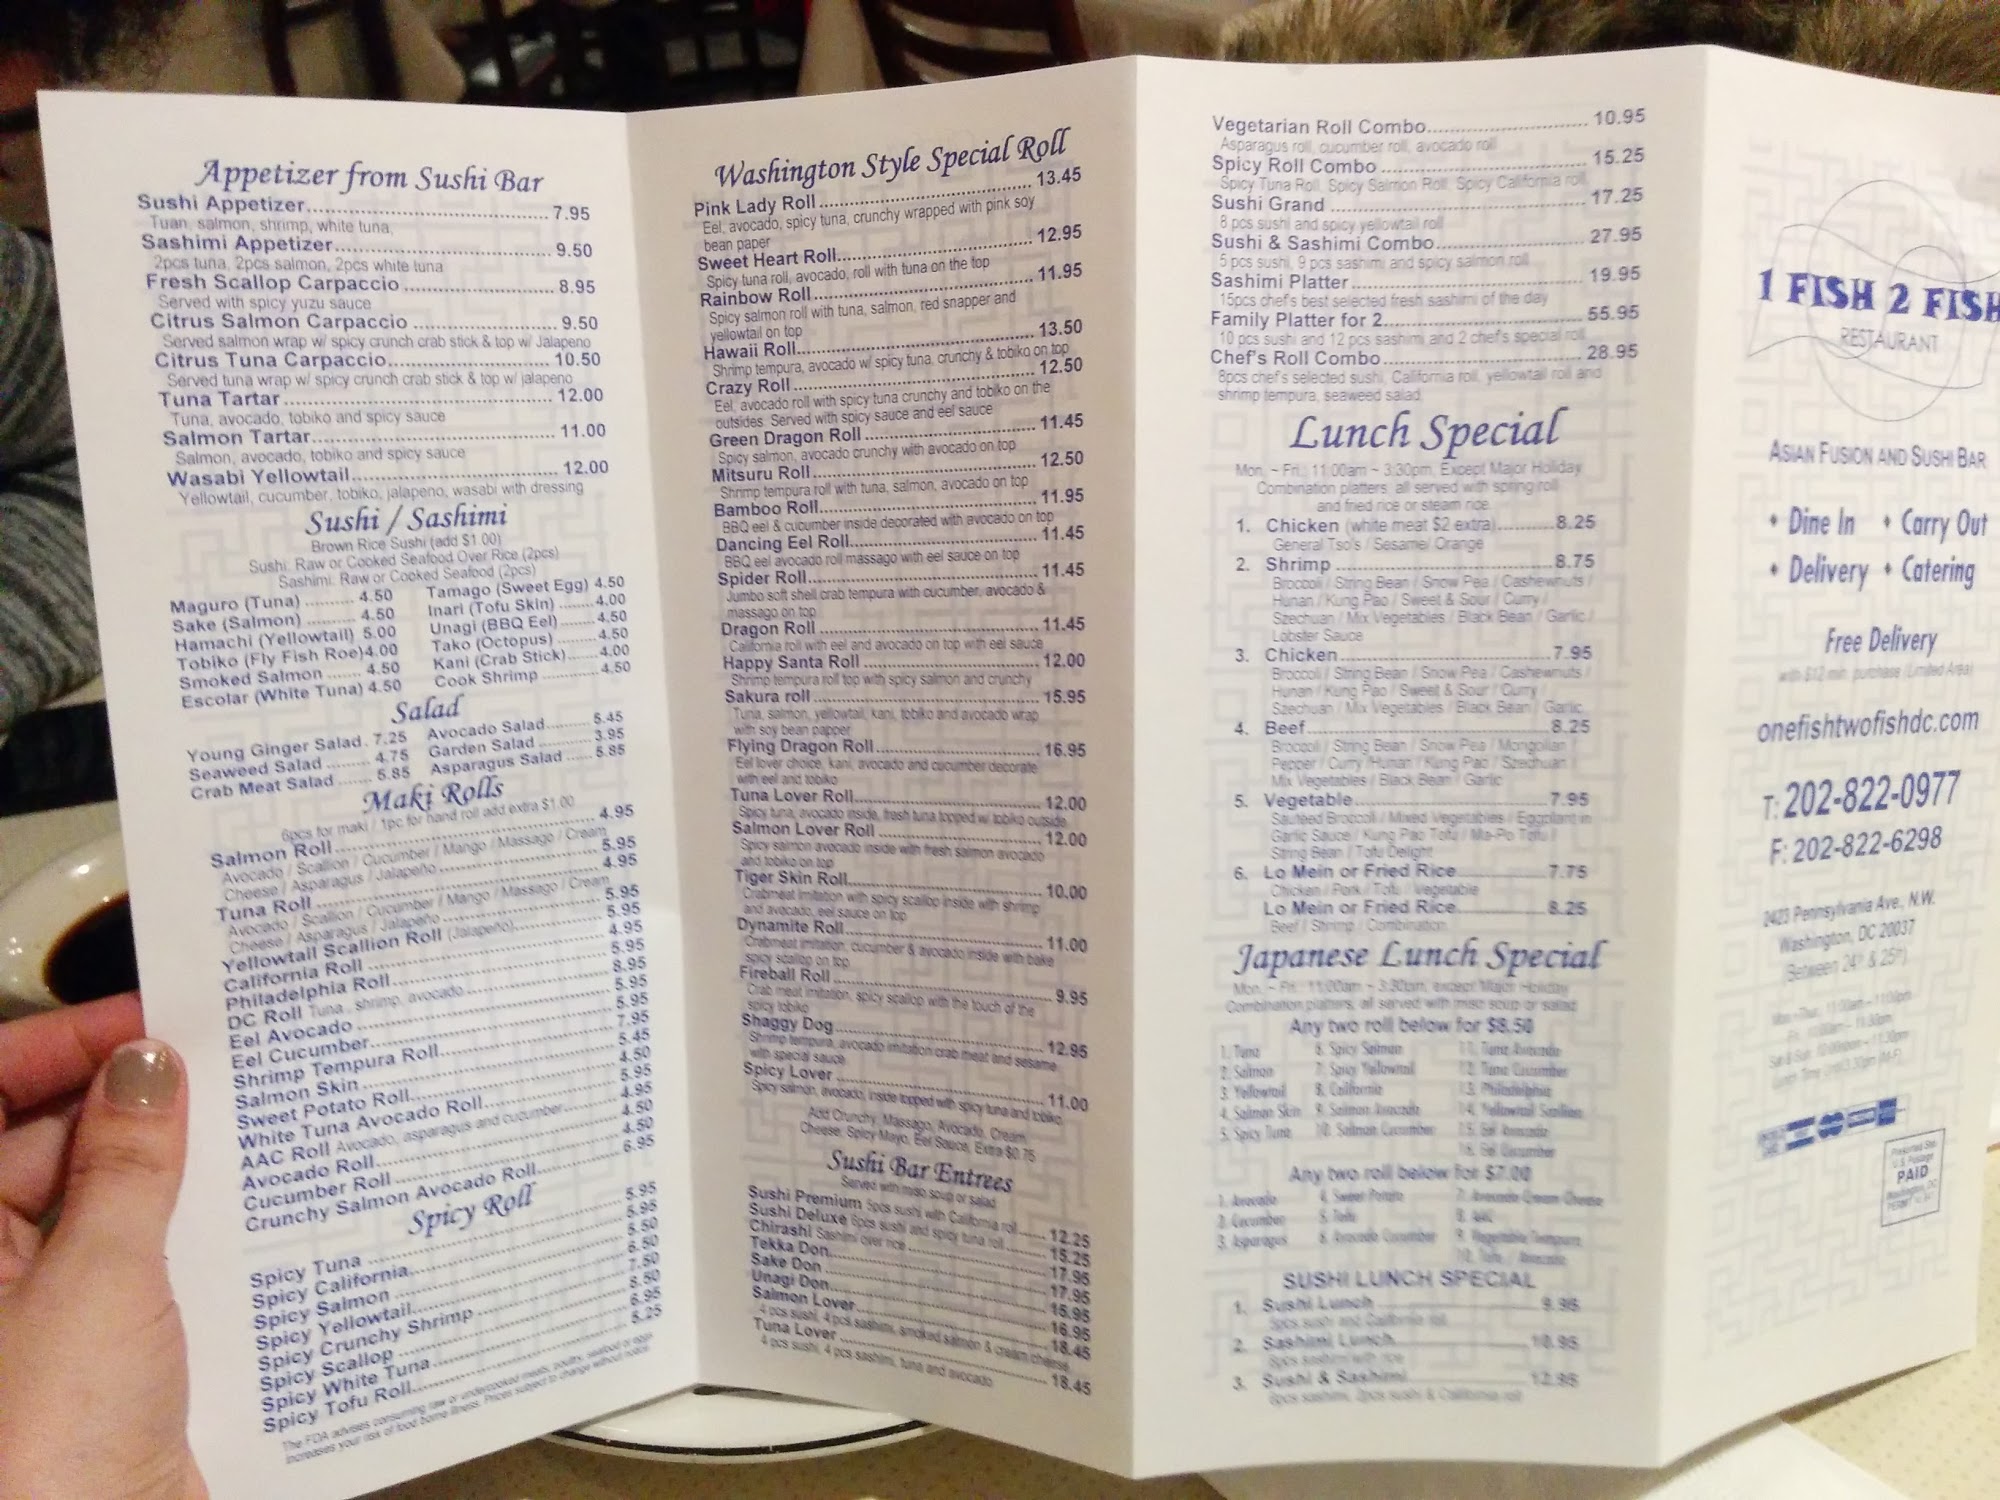 Appetizer from Sushi Bar
Sushi Appetizer 7.95
Tuan, salmon, shrimp, white tuna,
Sashimi Appetizer 9.50
2pcs tuna, 2pcs salmon, 2pcs white tuna
Fresh Scallop Carpaccio 8.95
Served with spicy yuzu sauce
Citrus Salmon Carpaccio 9.50
Served salmon wrap w/ spicy crunch crab stick & top w/ Jalapeno
Citrus Tuna Carpaccio 10.50
Served tuna wrap w/ spicy crunch crab stick & top w/ jalapeno
Tuna Tartar 12.00
Tuna, avocado, tobiko and spicy sauce
Salmon Tartar 11.00
Salmon, avocado, tobiko and spicy sauce
Wasabi Yellowtail 12.00
Yellowtail, cucumber, tobiko, jalapeno, wasabi with dressing
Sushi / Sashimi
Brown Rice Sushi (add $1.00)
Sushi: Raw or Cooked Seafood Over Rice (2pcs)
Sashimi: Raw or Cooked Seafood (2pcs)
Maguro (Tuna) 4.50
Sake (Salmon) 4.50
Hamachi (Yellowtail) 5.00
Tobiko (Fly Fish Roe) 4.00
Smoked Salmon 4.50
Escolar (White Tuna) 4.50
Tamago (Sweet Egg) 4.50
Inari (Tofu Skin) 4.00
Unagi (BBQ Eel) 4.50
Tako (Octopus) 4.50
Kani (Crab Stick) 4.00
Cook Shrimp 4.50
Salad
Young Ginger Salad 7.25
Seaweed Salad 4.75
Crab Meat Salad 5.85
Avocado Salad 5.45
Garden Salad 3.95
Asparagus Salad 5.85
Maki Rolls
6pcs for maki / 1pc for hand roll add extra $1.00
Salmon Roll 4.95
Avocado / Scallion / Cucumber / Mango / Massago / Cream
Cheese / Asparagus / Jalapeño 5.95
Tuna Roll 4.95
Avocado / Scallion / Cucumber / Mango / Massago / Cream
Cheese / Asparagus / Jalapeño 5.95
Yellowtail Scallion Roll (Jalapeño) 5.95
California Roll 4.95
Philadelphia Roll 5.95
DC Roll Tuna, shrimp, avocado 8.95
Eel Avocado 5.95
Eel Cucumber 5.95
Shrimp Tempura Roll 7.95
Salmon Skin 5.45
Sweet Potato Roll 4.50
White Tuna Avocado Roll 5.95
AAC Roll Avocado, asparagus and cucumber 4.95
Avocado Roll 4.50
Cucumber Roll 4.50
Crunchy Salmon Avocado Roll 6.95
Spicy Roll
Spicy Tuna 5.95
Spicy California 5.95
Spicy Salmon 5.50
Spicy Yellowtail 6.50
Spicy Crunchy Shrimp 7.50
Spicy Scallop 8.50
Spicy White Tuna 6.95
Spicy Tofu Roll 5.25
The FDA advises consuming raw or undercooked meats, poultry, seafood or eggs
increases your risk of food borne illness. Prices subject to change without notice.
Washington Style Special Roll
Pink Lady Roll 13.45
Eel, avocado, spicy tuna, crunchy wrapped with pink soy
bean paper
Sweet Heart Roll 12.95
Spicy tuna roll, avocado, roll with tuna on the top
Rainbow Roll 11.95
Spicy salmon roll with tuna, salmon, red snapper and
yellowtail on top
Hawaii Roll 13.50
Shrimp tempura, avocado w/ spicy tuna, crunchy & tobiko on top
Crazy Roll 12.50
Eel, avocado roll with spicy tuna crunchy and tobiko on the
outsides. Served with spicy sauce and eel sauce
Green Dragon Roll 11.45
Spicy salmon, avocado crunch with avocado on top
Mitsuru Roll 12.50
Shrimp tempura roll with tuna, salmon, avocado on top
Bamboo Roll 11.95
BBQ eel & cucumber inside decorated with avocado on top
Dancing Eel Roll 11.45
BBQ eel avocado roll massago with eel sauce on top
Spider Roll 11.45
Jumbo soft shell crab tempura with cucumber, avocado &
massago on top
Dragon Roll 11.45
California roll with eel and avocado on top with eel sauce
Happy Santa Roll 12.00
Shrimp tempura roll top with spicy salmon and crunchy
Sakura roll 15.95
Tuna, salmon, yellowtail, kani, tobiko and avocado wrap
with soy bean papper
Flying Dragon Roll 16.95
Eel lover choice, kani, avocado and cucumber decorate
with eel and tobiko
Tuna Lover Roll 12.00
Spicy tuna, avocado inside, fresh tuna topped w/ tobiko outside
Salmon Lover Roll 12.00
Spicy salmon avocado inside with fresh salmon avocado
and tobiko on top
Tiger Skin Roll 10.00
Crabmeat imitation with spicy scallop inside with shrimp
and avocado, eel sauce on top
Dynamite Roll 11.00
Crabmeat imitation, cucumber & avocado inside with bake
spicy scallop on top
Fireball Roll 9.95
Crab meat imitation, spicy scallop with the touch of the
spicy tobiko
Shaggy Dog 12.95
Shrimp tempura, avocado imitation crab meat and sesame
with special sauce
Spicy Lover 11.00
Spicy salmon, avocado, inside topped with spicy tuna and tobiko
Add Crunchy, Massago, Avocado, Cream
Cheese, Spicy Mayo, Eel Sauce, Extra $0.75
Sushi Bar Entrees
Served with miso soup or salad
Sushi Premium 5pcs sushi with California roll 12.25
Sushi Deluxe 6pcs sushi and spicy tuna roll 15.25
Chirashi Sashimi over rice 17.95
Tekka Don 17.95
Sake Don 15.95
Unagi Don 16.95
Salmon Lover 18.45
4 pcs sushi, 4 pcs sashimi, smoked salmon & cream cheese
Tuna Lover 18.45
4 pcs sushi, 4 pcs sashimi, tuna and avocado
Vegetarian Roll Combo 10.95
Asparagus roll, cucumber roll, avocado roll
Spicy Roll Combo 15.25
Spicy Tuna Roll, Spicy Salmon Roll, Spicy California roll
Sushi Grand 17.25
8 pcs sushi and spicy yellowtail roll
Sushi & Sashimi Combo 27.95
5 pcs sushi, 9 pcs sashimi and spicy salmon roll
Sashimi Platter 19.95
15pcs chef's best selected fresh sashimi of the day
Family Platter for 2 55.95
10 pcs sushi and 12 pcs sashimi and 2 chef's special roll
Chef's Roll Combo 28.95
8pcs chef's selected sushi, California roll, yellowtail roll and
shrimp tempura, seaweed salad
Lunch Special
Mon. ~ Fri.: 11:00am ~ 3:30pm, Except Major Holiday
Combination platters, all served with spring roll
and fried rice or steam rice
1. Chicken (white meat $2 extra) 8.25
General Tso's / Sesame/ Orange
2. Shrimp 8.75
Broccoli / String Bean / Snow Pea / Cashewnuts /
Hunan / Kung Pao / Sweet & Sour / Curry /
Szechuan / Mix Vegetables / Black Bean / Garlic /
Lobster Sauce
3. Chicken 7.95
Broccoli / String Bean / Snow Pea / Cashewnuts /
Hunan / Kung Pao / Sweet & Sour / Curry /
Szechuan / Mix Vegetables / Black Bean / Garlic
4. Beef 8.25
Broccoli / String Bean / Snow Pea / Mongolian /
Pepper / Curry /Hunan / Kung Pao / Szechuan /
Mix Vegetables / Black Bean / Garlic
5. Vegetable 7.95
Sauteed Broccoli / Mixed Vegetables / Eggplant in
Garlic Sauce / Kung Pao Tofu / Ma-Po Tofu /
String Bean / Tofu Delight
6. Lo Mein or Fried Rice 7.75
Chicken / Pork / Tofu / Vegetable
Lo Mein or Fried Rice 8.25
Beef / Shrimp / Combination
Japanese Lunch Special
Mon. ~ Fri.: 11:00am ~ 3:30pm, except Major Holiday
Combination platters, all served with miso soup or salad
Any two roll below for $8.50
1. Tuna 6. Spicy Salmon 11. Tuna Avocado
2. Salmon 7. Spicy Yellowtail 12. Tuna Cucumber
3. Yellowtail 8. California 13. Philadelphia
4. Salmon Skin 9. Salmon Avocado 14. Yellowtail Scallion
5. Spicy Tuna 10. Salmon Cucumber 15. Eel Avocado
16. Eel Cucumber
Any two roll below for $7.00
1. Avocado 4. Sweet Potato 7. Avocado Cream Cheese
2. Cucumber 5. Tofu 8. AAC
3. Asparagus 6. Avocado Cucumber 9. Vegetable Tempura
10. Tofu / Avocado
SUSHI LUNCH SPECIAL
1. Sushi Lunch 9.95
5pcs sushi and California roll
2. Sashimi Lunch 10.95
sashimi with rice
3. Sushi & Sashimi 12.95
sashimi, sushi & California roll
1 FISH 2 FISH
RESTAURANT
ASIAN FUSION AND SUSHI BAR
• Dine In • Carry Out
• Delivery • Catering
Free Delivery
with $12 min. purchase (Limited Area)
onefishtwofishdc.com
T: 202-822-0977
F: 202-822-6298
2423 Pennsylvania Ave., N.W.
Washington, DC 20037
(Between 24th & 25th)
Mon.~Thur.: 11:00am ~ 11:00pm
PAID